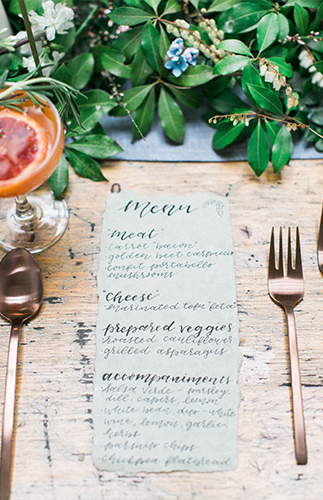 Menu
"Meat"
carrot "bacon"
golden beet carpaccio
confit portabello
mushrooms
"Cheese"
marinated tofu "feta"
prepared veggies
roasted cauliflower
grilled asparagus
accompaniments
salsa verde - parsley,
dill, capers, lemon
white bean dip - white
wine, lemon, garlic,
herbs
parsnip chips
chickpea flatbread